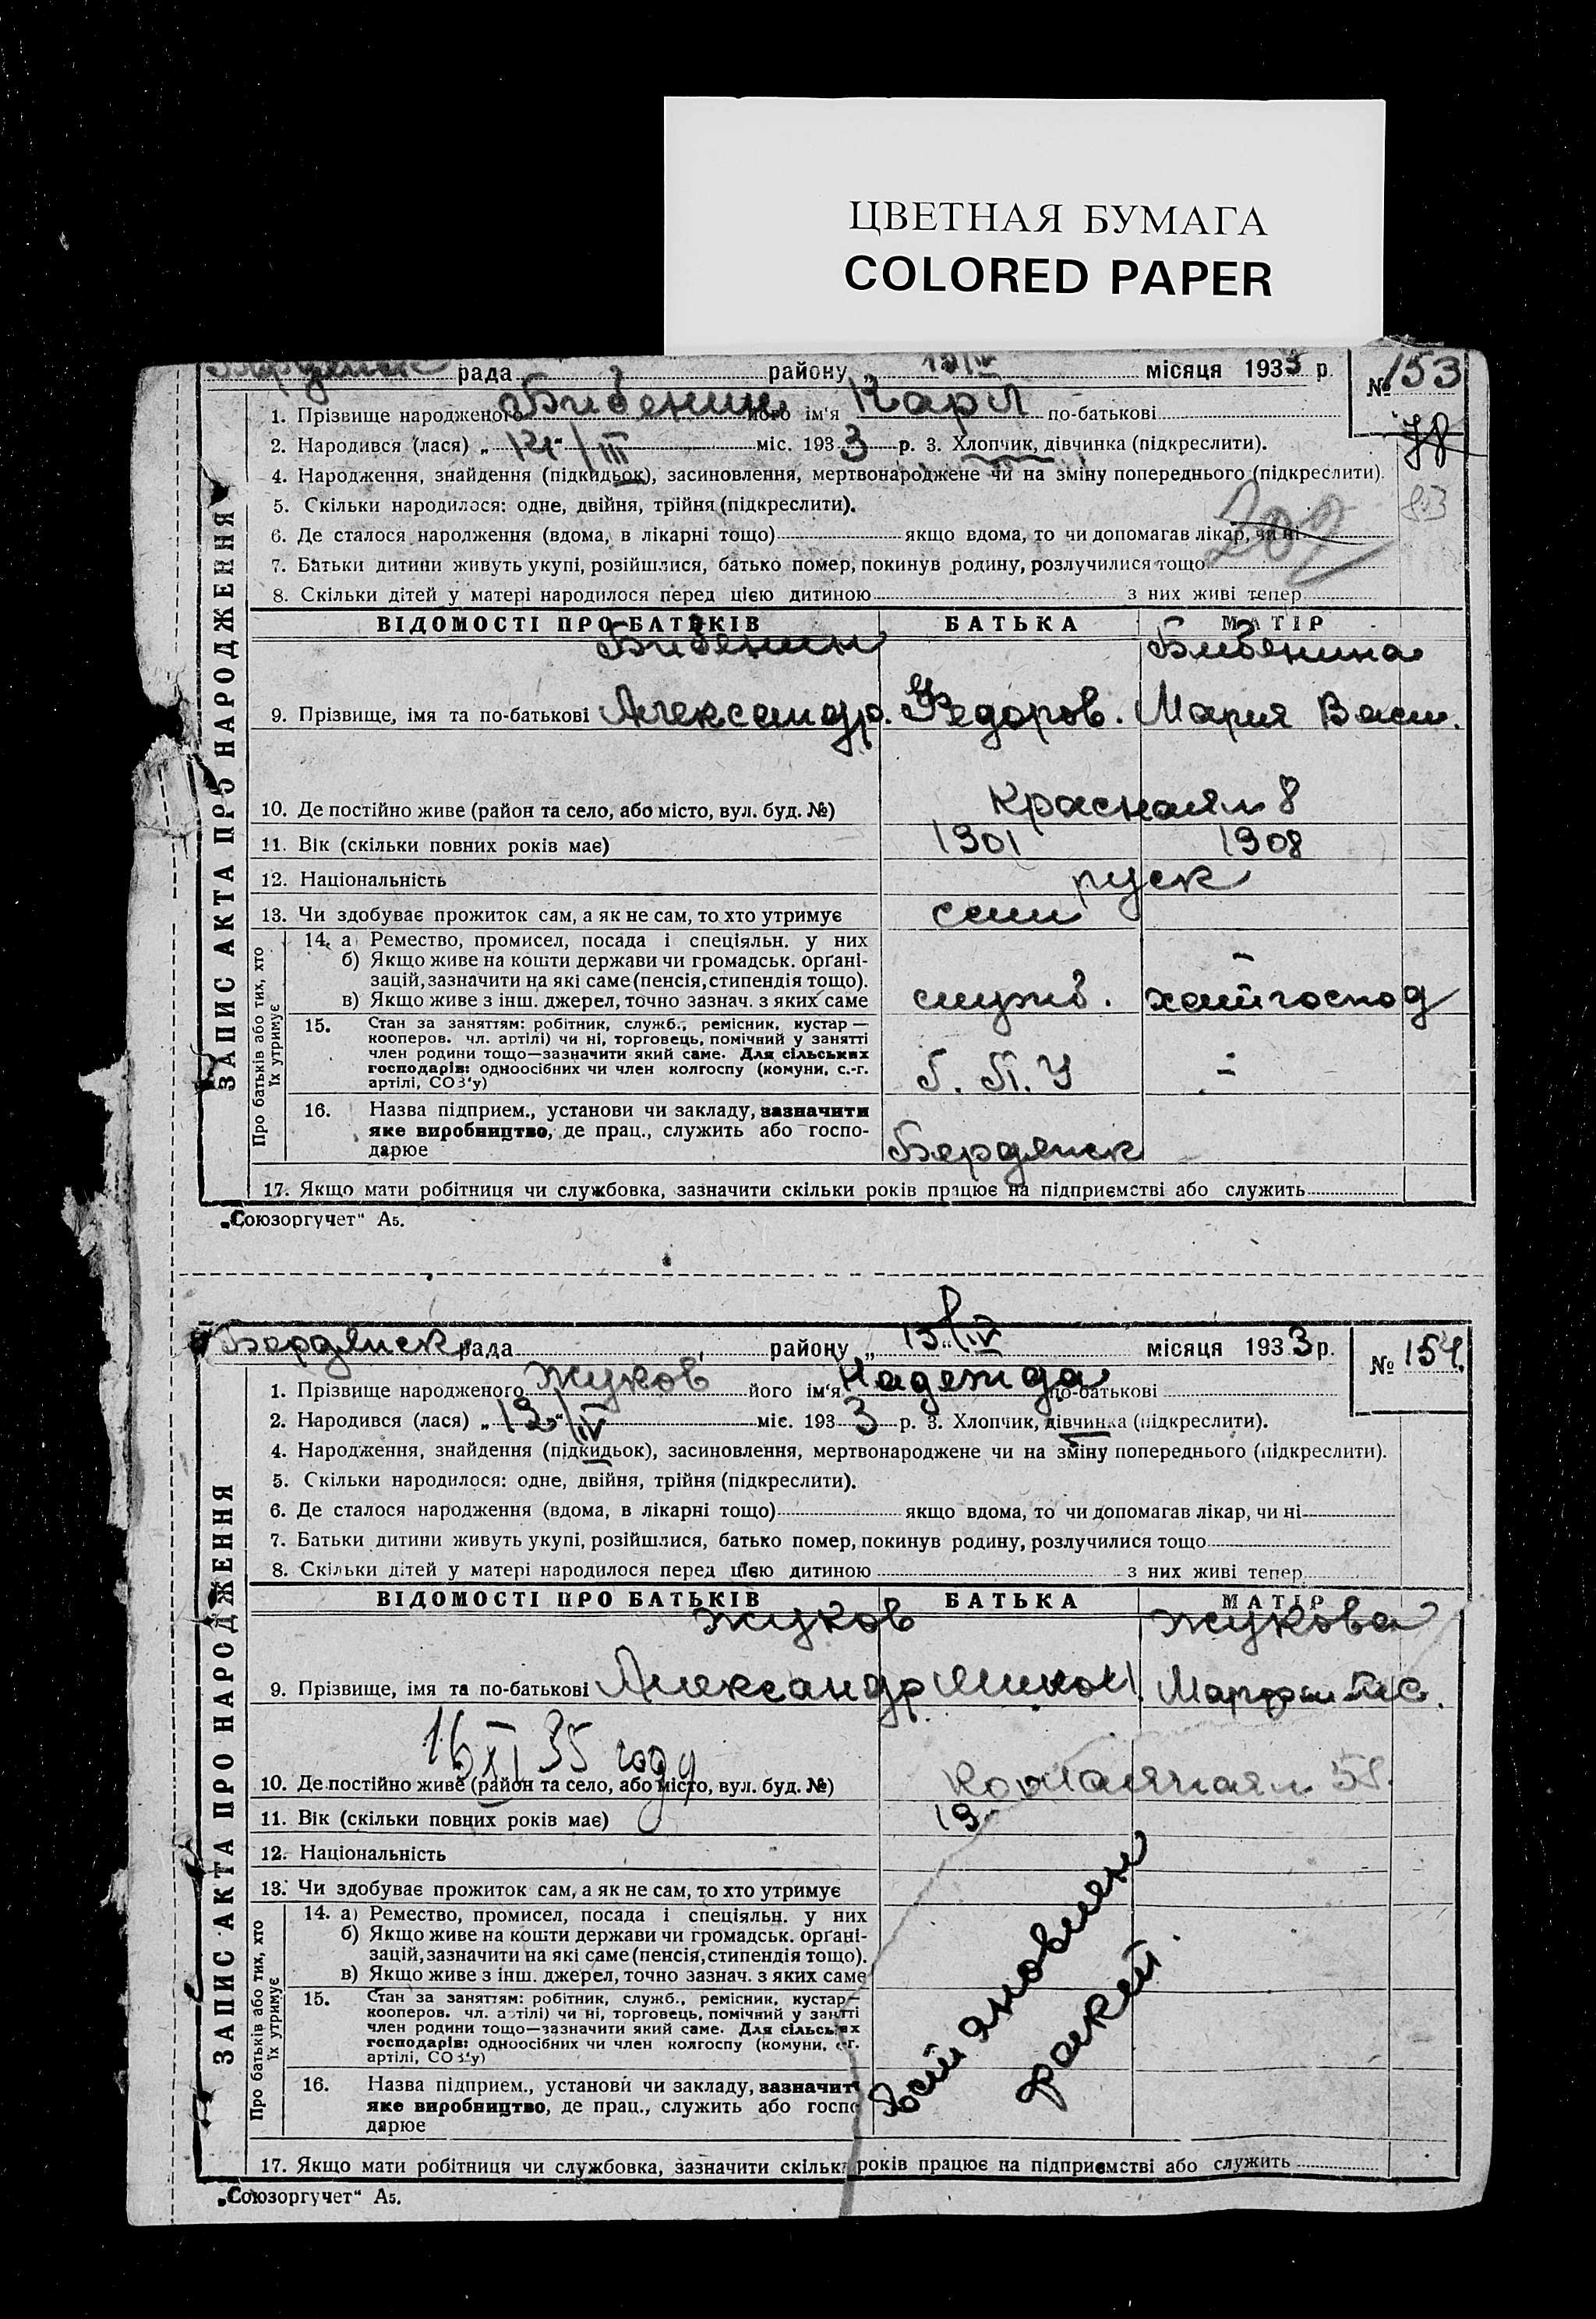 ЦВЕТНАЯ БУМАГА
COLORED PAPER
рада района місяця 1933 р. № 153
1. Прізвище народженого Бибенин його ім'я Карл по-батькові
78
2. Народився (лася) „ 14 “ / III міс. 1933 р. 3. Хлопчик, дівчинка (підкреслити).
4. Народження, знайдення (підкидьок), засиновлення, мертвонароджене чи на зміну попереднього (підкреслити).
5. Скільки народилося: одне, двійня, трійня (підкреслити).
6. Де сталося народження (вдома, в лікарні тощо) якщо вдома, то чи допомагав лікар, чи ні
202
7. Батьки дитини живуть укупі, розійшлися, батько помер, покинув родину, розлучилися тощо
8. Скільки дітей у матері народилося перед цією дитиною з них живі тепер
ЗАПИС АКТА ПРО НАРОДЖЕННЯ
ВІДОМОСТІ ПРО БАТЬКІВ БАТЬКА МАТІР
Бибенин Бибенина
9. Прізвище, імя та по-батькові Александр. Федоров. Мария Васи.
10. Де постійно живе (район та село, або місто, вул. буд. №) Красная 8
11. Вік (скільки повних років має) 1901 1908
12. Національність руск
13. Чи здобуває прожиток сам, а як не сам, то хто утримує сам
Про батьків або тих, хто їх утримує
14. а) Ремество, промисел, посада і спеціяльн. у них
б) Якщо живе на кошти держави чи громадськ. орґані-
зацій, зазначити на які саме (пенсія, стипендія тощо).
в) Якщо живе з інш. джерел, точно зазнач. з яких саме служб.
15. Стан за заняттям: робітник, служб., ремісник, кустар —
кооперов. чл. артілі) чи ні, торговець, помічний у занятті
член родини тощо—зазначити який саме. Для сільських
господарів: одноосібних чи член колгоспу (комуни, с.-г.
артілі, СОЗ'у)
16. Назва підприєм., установи чи закладу, зазначити
яке виробництво, де прац., служить або госпо-
дарює Бердянск
17. Якщо мати робітниця чи службовка, зазначити скільки років працює на підприємстві або служить
„Союзоргучет“ А5.
Бердянск рада району „ 15 “ IV місяця 1933 р. № 154
1. Прізвище народженого Жуков його ім'я Надежда по-батькові
2. Народився (лася) „ 12 “ / IV міс. 1933 р. 3. Хлопчик, дівчинка (підкреслити).
4. Народження, знайдення (підкидьок), засиновлення, мертвонароджене чи на зміну попереднього (підкреслити).
5. Скільки народилося: одне, двійня, трійня (підкреслити).
6. Де сталося народження (вдома, в лікарні тощо) якщо вдома, то чи допомагав лікар, чи ні
7. Батьки дитини живуть укупі, розійшлися, батько помер, покинув родину, розлучилися тощо
8. Скільки дітей у матері народилося перед цією дитиною з них живі тепер
ЗАПИС АКТА ПРО НАРОДЖЕННЯ
ВІДОМОСТІ ПРО БАТЬКІВ БАТЬКА МАТІР
Жуков Жукова
9. Прізвище, імя та по-батькові Александр
16 XI 35 году
10. Де постійно живе (район та село, або місто, вул. буд. №)
11. Вік (скільки повних років має) 19
12. Національність
13. Чи здобуває прожиток сам, а як не сам, то хто утримує
Про батьків або тих, хто їх утримує
14. а) Ремество, промисел, посада і спеціяльн. у них
б) Якщо живе на кошти держави чи громадськ. орґані-
зацій, зазначити на які саме (пенсія, стипендія тощо).
в) Якщо живе з інш. джерел, точно зазнач. з яких саме
15. Стан за заняттям: робітник, служб., ремісник, кустар—
кооперов. чл. артілі) чи ні, торговець, помічний у занятті
член родини тощо—зазначити який саме. Для сільських
господарів: одноосібних чи член колгоспу (комуни, с.-г.
артілі, СОЗ'у)
16. Назва підприєм., установи чи закладу, зазначит
яке виробництво, де прац., служить або госпо
дарює
17. Якщо мати робітниця чи службовка, зазначити скільки років працює на підприємстві або служить
„Союзоргучет“ А5.